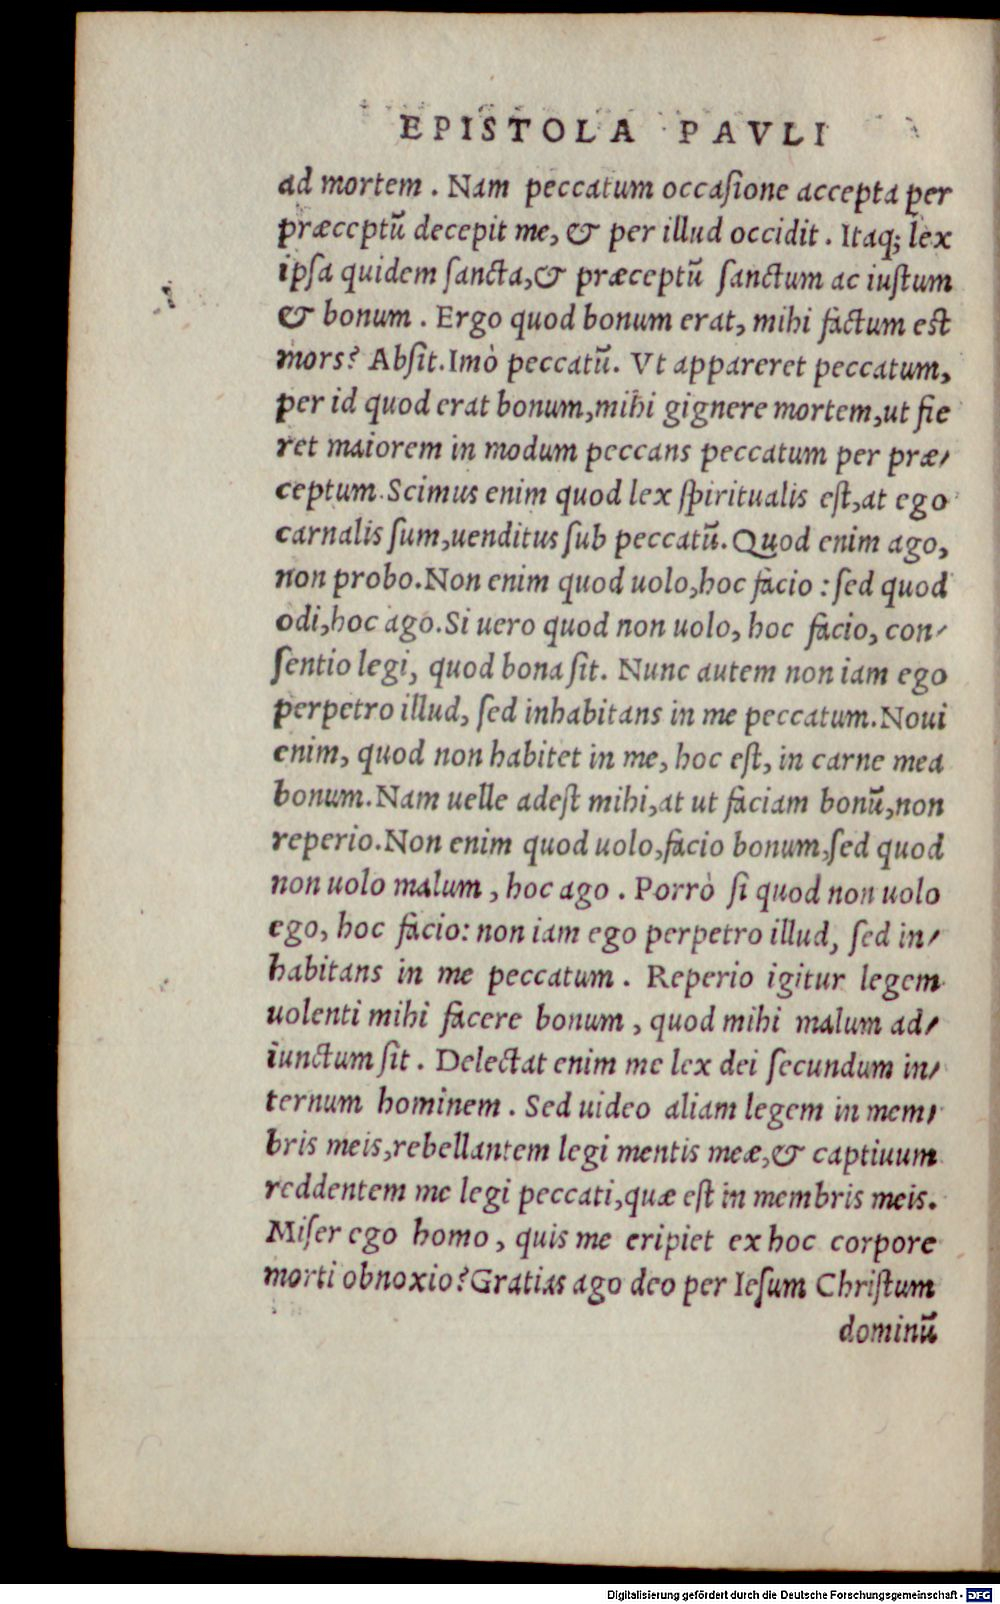 EPISTOLA PAVLI
ad mortem . Nam peccatum occaſione accepta per
præceptũ decepit me, & per illud occidit . Itaq; lex
ipſa quidem ſancta,& præceptũ ſanctum ac iuſtum
& bonum . Ergo quod bonum erat, mihi factum est
mors? Abſit.Imò peccatũ. Vt appareret peccatum,
per id quod erat bonum,mihi gignere mortem,ut fie
ret maiorem in modum peccans peccatum per præ/
ceptum.Scimus enim quod lex ſpiritualis eſt,at ego
carnalis ſum,uenditus ſub peccatũ.Quod enim ago,
non probo.Non enim quod uolo,hoc facio : ſed quod
odi,hoc ago.Si uero quod non uolo, hoc facio, con/
ſentio legi, quod bona ſit. Nunc autem non iam ego
perpetro illud, ſed inhabitans in me peccatum.Noui
enim, quod non habitet in me, hoc eſt, in carne mea
bonum.Nam uelle adeſt mihi,at ut faciam bonũ,non
reperio.Non enim quod uolo,facio bonum,ſed quod
non uolo malum , hoc ago . Porrò ſi quod non uolo
ego, hoc facio: non iam ego perpetro illud, ſed in/
habitans in me peccatum . Reperio igitur legem
uolenti mihi facere bonum , quod mihi malum ad/
iunctum ſit . Delectat enim me lex dei ſecundum in/
ternum hominem . Sed uideo aliam legem in mem/
bris meis,rebellantem legi mentis meæ,& captiuum
reddentem me legi peccati,quæ eſt in membris meis.
Miſer ego homo , quis me eripiet ex hoc corpore
morti obnoxio?Gratias ago deo per Ieſum Chriſtum
dominũ
Digitalisierung gefördert durch die Deutsche Forschungsgemeinschaft - DFG